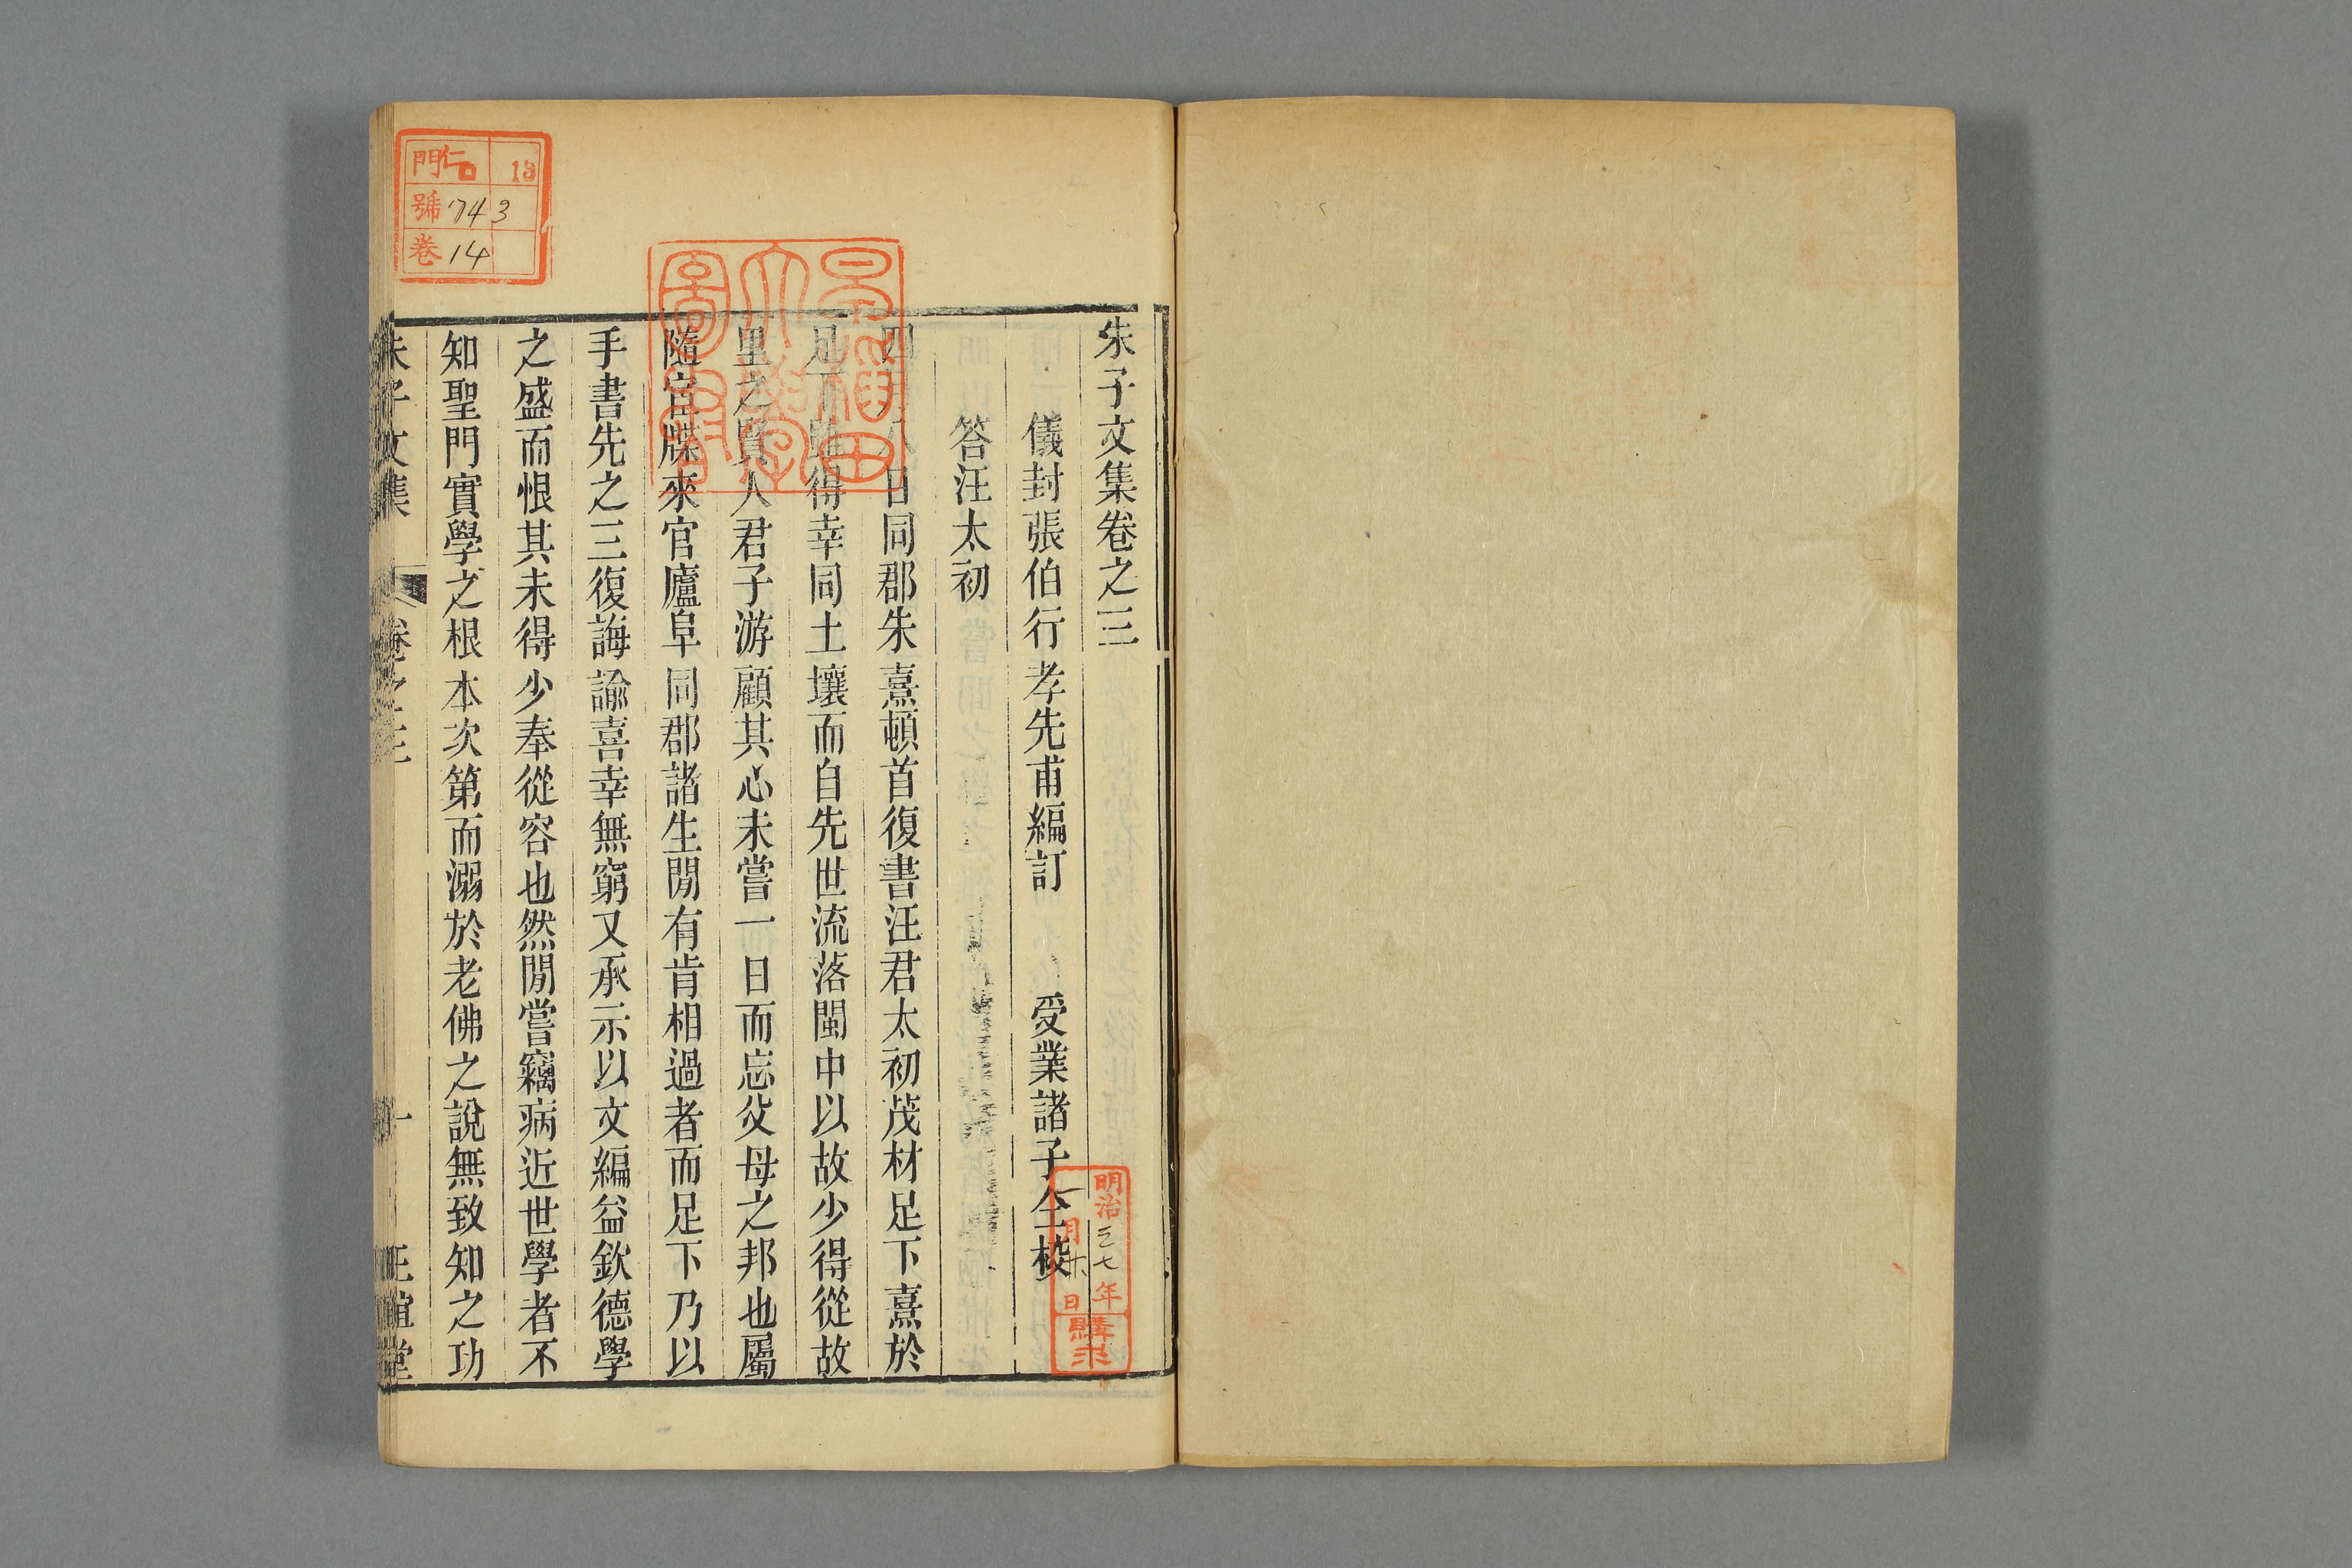 朱子文集卷之三
儀封張伯行孝先甫編訂 受業諸子仝校
答汪太初
四月八日同郡朱熹頓首復書汪君太初茂材足下熹於
足下雖得幸同土壤而自先世流落閩中以故少得從故
里之賢人君子游顧其心未嘗一日而忘父母之邦也屬
隨官牒來官廬阜同郡諸生閒有肯相過者而足下乃以
手書先之三復誨諭喜幸無窮又承示以文編益欽德學
之盛而恨其未得少奉從容也然閒嘗竊病近世學者不
知聖門實學之根本次第而溺於老佛之說無致知之功
朱子文集 卷之三 一 正誼堂
門 仁 13
號 743
卷 14
早稲田大學圖書
明治三七年
月廿日
購求